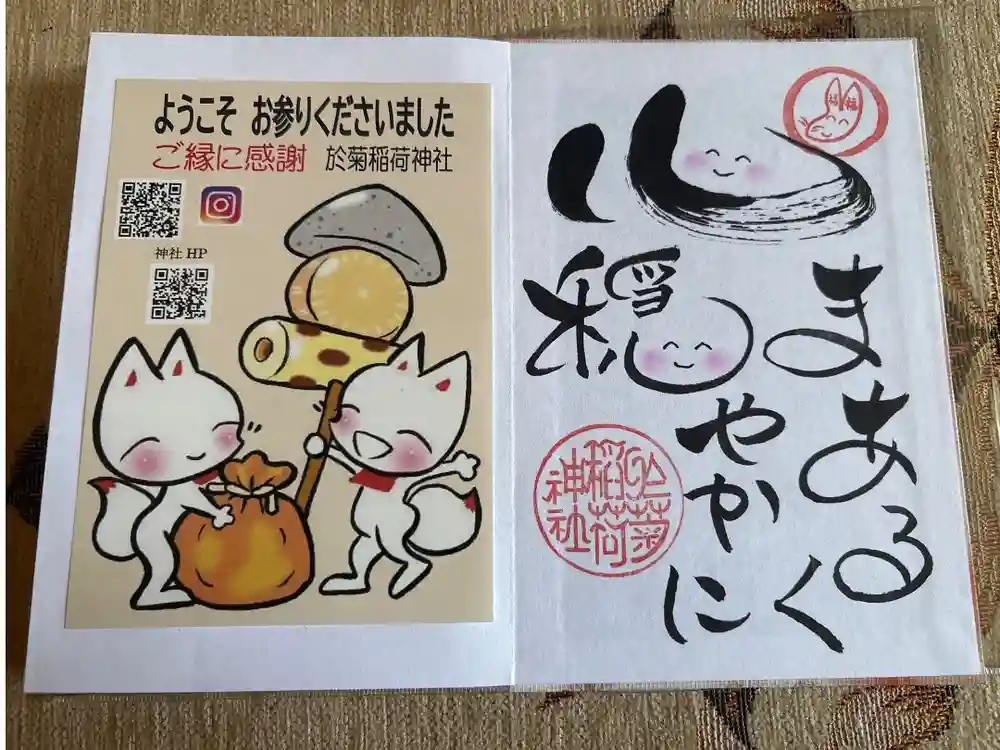 ようこそ お参りくださいました
ご縁に感謝 於菊稲荷神社
神社 HP
心
まあるく
穏やかに
於菊
稲荷
神社